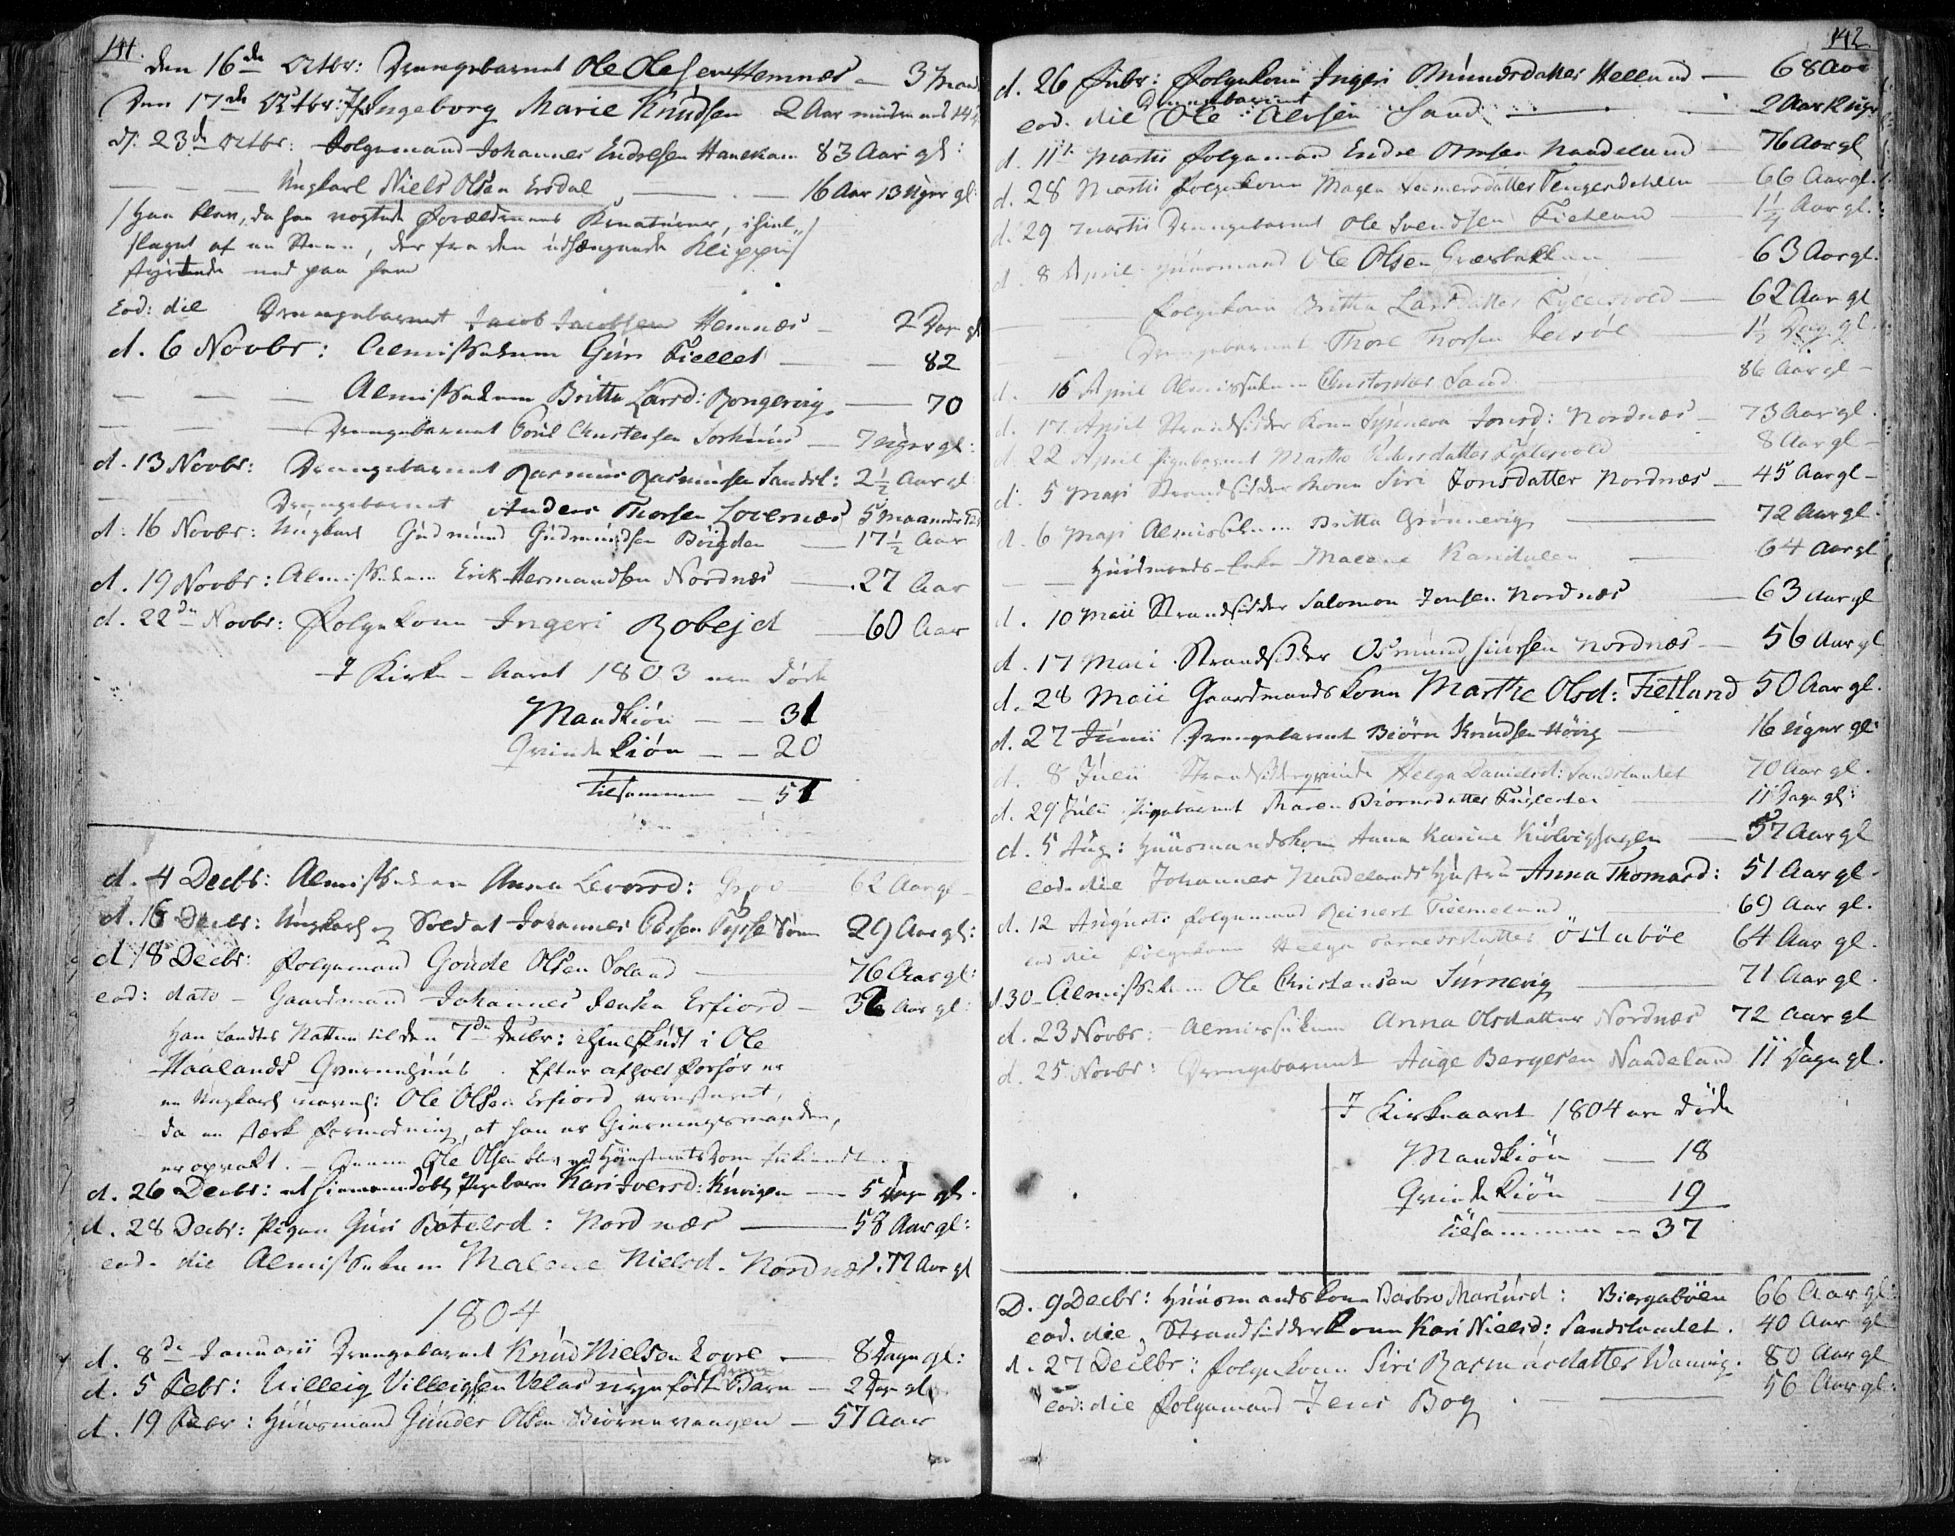 141.
den 16de Octbr: Drengebarnet Ole Olesen Hemnæs – 3 Maan
Den 17de Octbr: Ingeborg Marie Knudsen 2 Aar mindre end 14
d. 23d Octbr: Folgemand Johannes Endresen Hanekam 83 Aar gl:
– – – Ungkarl Niels Olsen Ersdal – – 16 Aar 13 Uger gl:
/Han blev, da han vogtede Forældrenes Kreaturer, ihiel
slaget af en Steen, der fra den udhængende Klippe/
styrtede ned paa ham
Eod: die Drengebarnet Jacob Jacobsen Hemnæs – 2 Dag gl
d. 6 Novbr: Almisselem Guri Fiellet – – 82
– – – Almisselem Britte Larsd: Rongevig – 70
– – – Drengebarnet Poul Christensen – 7 Uger gl:
d. 13 Novbr: Drengebarnet Rasmus Rasmusen Sandsl: 2½ Aar gl
– – Drengebarnet Anders Thorsen Lovernæs 5 Maaneder
d. 16 Novbr: Ungkarl Gudmund Gudmundsen Bøigden – 17½ Aar
d. 19 Novbr: Almisselem Erik Hermandsen Nordnæs – 27 Aar
d. 22de Novbr: Folgekone Ingeri Robejd – 60 Aar
I Kirke-Aaret 1803 ere døde
Mandkiøn – – 31
Qvindekiøn – – 20
Tilsammen – 51
d. 4 Decbr: Almisselem Anna Leversd: – 62 Aar gl –
d. 16 Decbr: Ungkarl og Soldat Johannes 29 Aar gl:
d 18 Decbr: Folgemand Goude Olsen Soland – 76 Aar gl:
eod: dato – Gaardmand Johannes Jensen Erfiord – Aar gl:
Han fandtes Natten til den 7de Decbr: ihielskudt i Ole
Haalands Qvernehuus. Efter afholdt Forhør er
en Ungkarl navnl: Ole Olsen Erfiord arresteret,
da en stærk Formodning, at han er Gierningsmanden,
er opvakt. – Ole Olsen blev ved Høiesteretsdom
d. 26 Decbr: et hiemmedøbt Pigebarn Kari Iversd: – 5 Dage gl.
d. 28 Decbr: Pigen Guri Botelsd: Nordnæs – 58 Aar gl:
eod. die Almisselem Malene Nielsd. Nordnæs. 72 Aar gl
1804
d. 8de Januarii Drengebarnet Knud Nielsen Lovre – 8 Dage gl:
d. 5 Febr: Villeig Villeigsen Velas nyefødt Barn – 2 Dag gl.
d. 19 Febr: Huusmand Gunder Olsen Biørnevangen – 57 Aar
142
d. 26 Febr: Folgekone Ingeri Omundsdatter Helland – 68 Aar
eod. die Drengebarnet Ole Sand – 2 Aar 12 Uger
d. 11te Martii Folgemand Endre Ormsen Naadeland – 76 Aar gl
d. 28 Martii Folgekone Magla Tengesdahlen – 66 Aar gl.
d. 29 Martii Drengebarnet Ole Svendsen Fietland – 1½ Aar gl.
d. 8 April Huusmand Ole Olsen Græsbakken – 63 Aar gl.
– – Folgekone Britta Larsdatter – 62 Aar gl
– – Drengebarnet Thore Thorsen – 1½ Dag gl.
d. 16 April Almisselem Christopher Sand – 86 Aar gl –
d. 17 April Strandsidder Kone Synneva Jonsd: Nordnæs – 73 Aar gl.
d. 22 April Pigebarnet Martha Pedersdatter 8 Aar gl –
d. 5 Maji Strandsidder Kone Siri Jonsdatter Nordnæs – 45 Aar gl –
d. 6 Maji Almisselem Britta Grønnevig – 72 Aar gl.
– – Huusmands-Enke Malene Kandalen – 64 Aar gl
d. 10 Maii Strandsidder Salomon Jonsen Nordnæs – 63 Aar gl
d. 17 Maii Strandsidder Osmund Nordnæs – 56 Aar gl
d. 28 Maii Gaardmands Kone Marthe Olsd: Fietland 50 Aar gl.
d. 27 Junii Drengebarnet Biørn Knudsen Høvig – 16 Uger gl:
d. 8 Julii Strandsidderqvinde Helga Danielsd: Sandslandet 70 Aar gl.
d. 29 Julii Pigebarnet Maren Biørnsdatter – 11 Dage gl:
d. 5 Aug: Huusmandskone Anna Karine – 57 Aar gl
eod. die Johannes Naadelands Hustru Anna Thomasd: 51 Aar gl.
d. 12 Augusti Folgemand Reinert – 69 Aar gl.
eod die Folgekone Helga Østabøe 64 Aar gl.
d 30 – Almisselem Ole Christensen Surnevig – 71 Aar gl.
d. 23 Novbr: Almisselem Anna Olsdatter Nordnæs 72 Aar gl
d. 25 Novbr: Drengebarnet Aage Bergesen Naadeland 11 Dage gl.
I Kirkeaaret 1804 ere døde
Mandkiøn – 18
Qvindekiøn – 19
Tilsammen – 37
D. 9 Decbr: Huusmandskone Barbro Marcusd: Biergabøen 66 Aar gl:
eod. die, Strandsidder Kone Kari Nielsd: Sandslandet. 40 Aar gl
d. 27 Decbr: Folgekone Siri Rasmusdatter 80 Aar gl
eod: die Folgemand Jens Bog – 56 Aar gl: